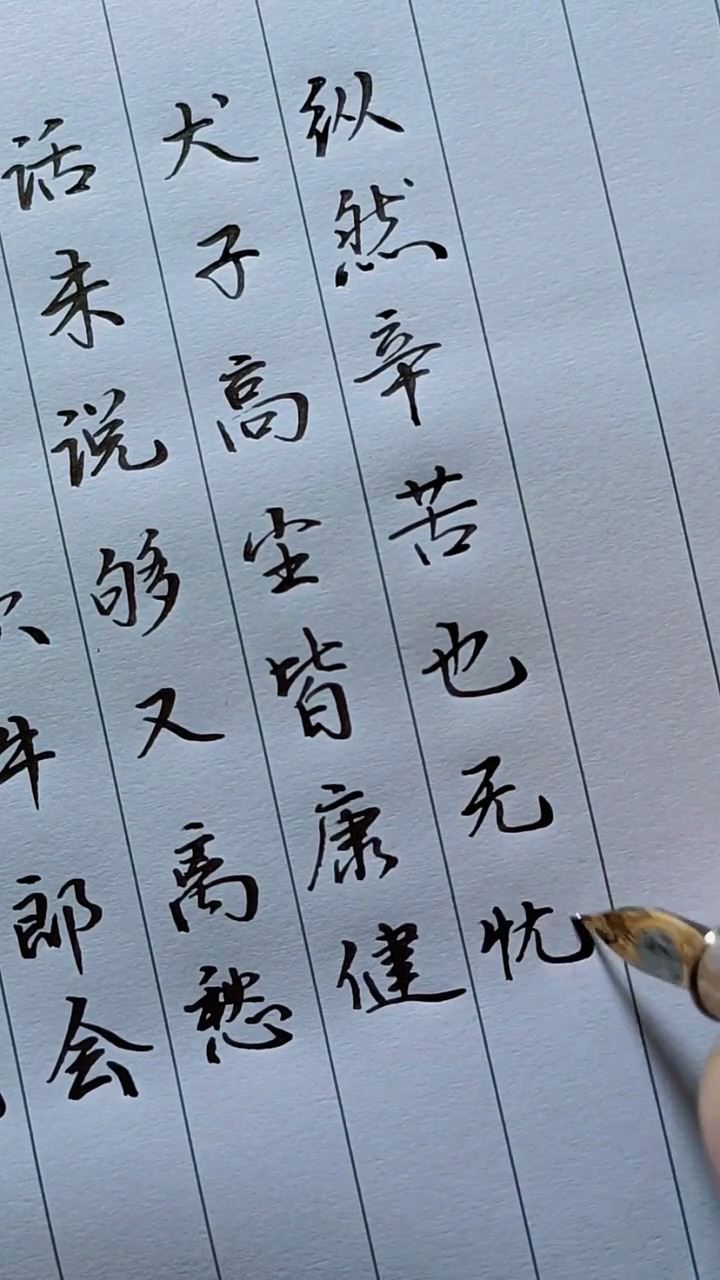 牛郎会
话未说够又离愁
犬子高堂皆康健
纵然辛苦也无忧